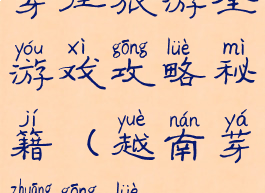 旅游
yóu xì gōng lüè mì
游戏攻略秘
jí yuè nán yá
籍(越南芽
zhuāng gōng lüè